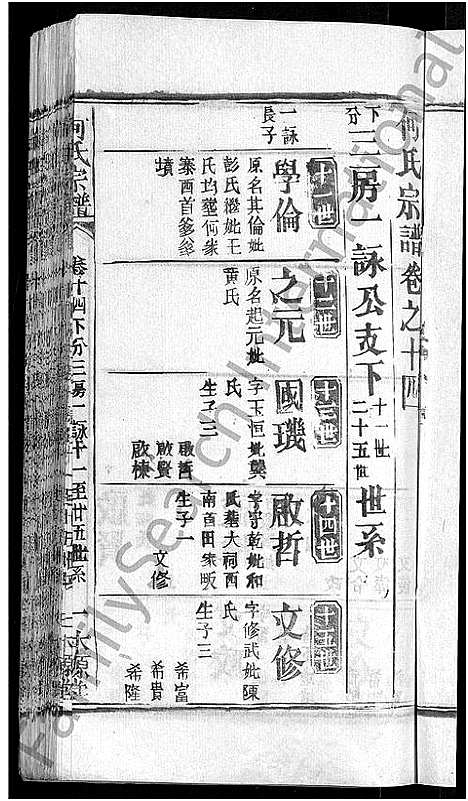 何氏宗譜卷之十四
下分三房一詠公支下十一世二十五世世系
一詠長子
十一世
學倫
原名其倫妣
彭氏繼妣王
氏均塟何家
寨酉首爹爹
墳
之元
原名起元妣
黄氏
十三世
國璣
字玉恒妣龔
氏
生子三
啟哲
啟賢
啟棟
十四世
啟哲
字守乾妣和
氏塟大祠西
南百田家畈
生子一
文修
十五世
文修
字修武妣陳
氏
生子三
希富
希貴
希隆
何氏宗譜
卷十四下分三房一詠十一至廿五世系
FamilySearch International